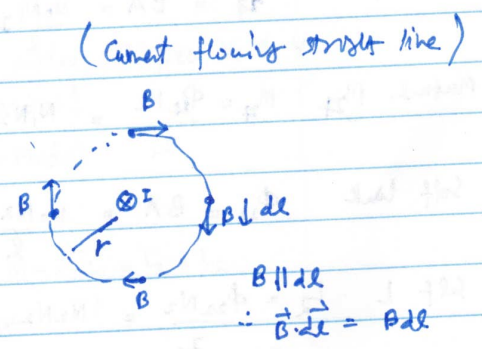 (Current flowing straight line)
B
B
⊗ I
B
dl
r
B
B || dl
∴ B⃗.dl⃗ = Bdl